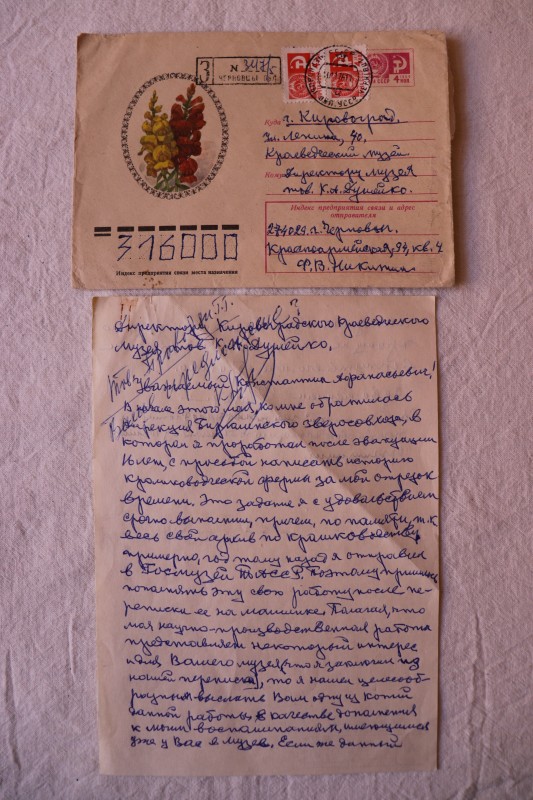 З № 347/5
ЧЕРНОВЦЫ
4
Куда г. Кировоград.
ул. Ленина, 40.
Краеведческий музей
Кому Директору музея
тов. К.А. Душейко.
Индекс предприятия связи и адрес
отправителя
274029. г. Черновцы.
Красноармейская, 94, кв. 4
Ф. В. Никитин
316000
Индекс предприятия связи места назначения
Директору Кировоградского Краеведческого
музея К. А. Душейко.
Уважаемый Константин Афанасьевич!
В начале этого мая, ко мне обратилась
дирекция зверосовхоза, в
котором я проработал после эвакуации
лет, с просьбой написать историю
кролиководческой фермы за мой отрезок
времени. Это задание я с удовольствием
срочно выполнил, причем, по памяти, т.к
весь свой архив по кролиководству
примерно, год тому назад я отправил
в Госмузей Поэтому пришлось
эту свою работу после пе-
реписки ее на машинке. Полагая, что
моя научно-производственная работа
представляет некоторый интерес
и для Вашего музея, что я заключил из
нашей переписки, то я нашел целесооб-
разным выслать Вам одну из копий
данной работы, в качестве дополнения
к моим воспоминаниям, имеющимся
уже у Вас в музее. Если же данный